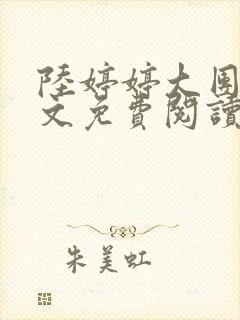 陸婷婷大團
文免費閱讀
朱美虹